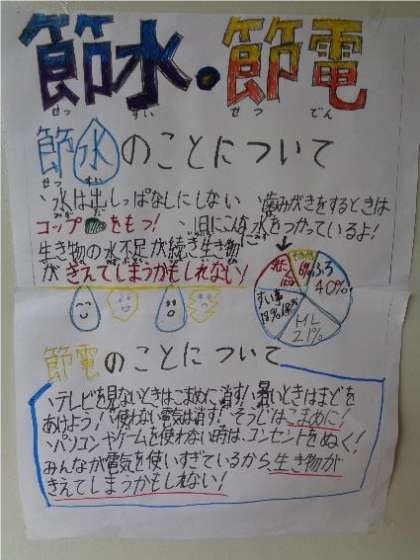 節水・節電
せっ すい せつ でん
節水のことについて
せっ すい
・水は出しっぱなしにしない ・歯みがきをするときは
コップをもつ! ・1日にこんな水をつかっているよ!
生き物の水不足が続き生き物
がきえてしまうかもしれない!
その他
ふろ
40%
トイレ
21%
すい事
18%
節電のことについて
・テレビを見ないときはこまめに消す!・暑いときはまどを
あけよう!・使わない電気は消す!・そうじはこまめに!
・パソコンやゲームを使わない時は、コンセントをぬく!
みんなが電気を使いすぎているから、生き物が
きえてしまうかもしれない!